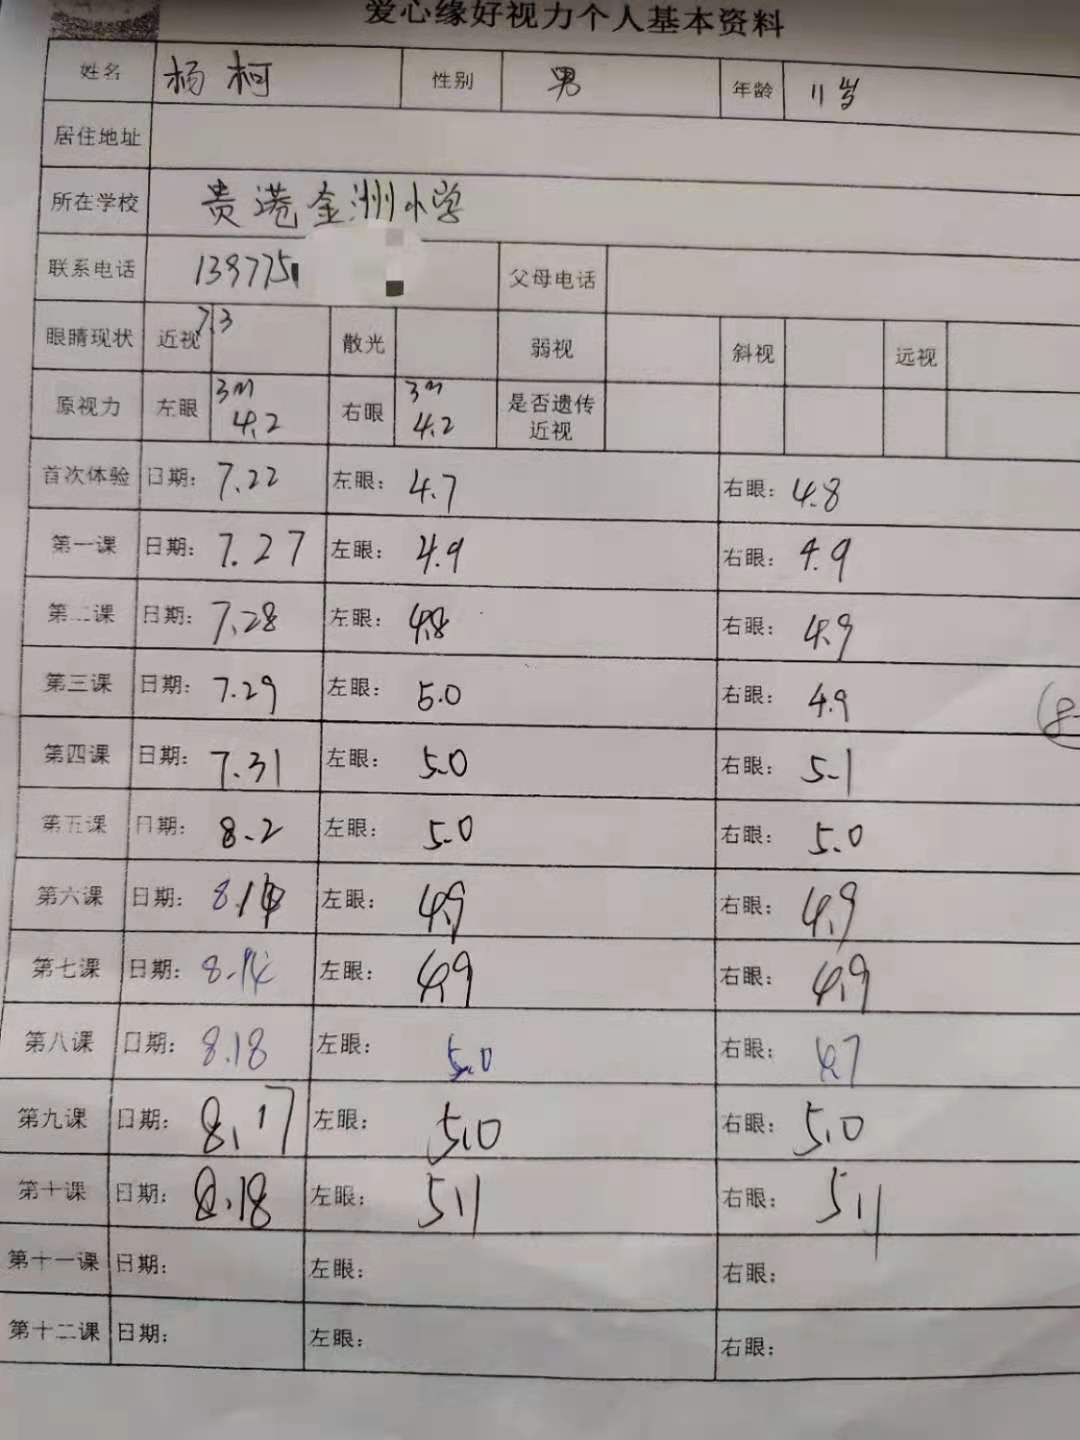 爱心缘好视力个人基本资料
姓名 杨柯 性别 男 年龄 11岁
居住地址
所在学校 贵港金洲小学
联系电话 139775 父母电话
眼睛现状 近视 7.3 散光 弱视 斜视 远视
原视力 左眼 3m 4.2 右眼 3m 4.2 是否遗传近视
首次体验 日期: 7.22 左眼: 4.7 右眼: 4.8
第一课 日期: 7.27 左眼: 4.9 右眼: 4.9
第二课 日期: 7.28 左眼: 4.8 右眼: 4.9
第三课 日期: 7.29 左眼: 5.0 右眼: 4.9
第四课 日期: 7.31 左眼: 5.0 右眼: 5.1
第五课 日期: 8.2 左眼: 5.0 右眼: 5.0
第六课 日期: 左眼: 4.9 右眼: 4.9
第七课 日期: 8.14 左眼: 4.9 右眼: 4.9
第八课 日期: 8.18 左眼: 5.0 右眼: 4.7
第九课 日期: 8.17 左眼: 5.0 右眼: 5.0
第十课 日期: 8.18 左眼: 5.1 右眼: 5.1
第十一课 日期: 左眼: 右眼:
第十二课 日期: 左眼: 右眼: